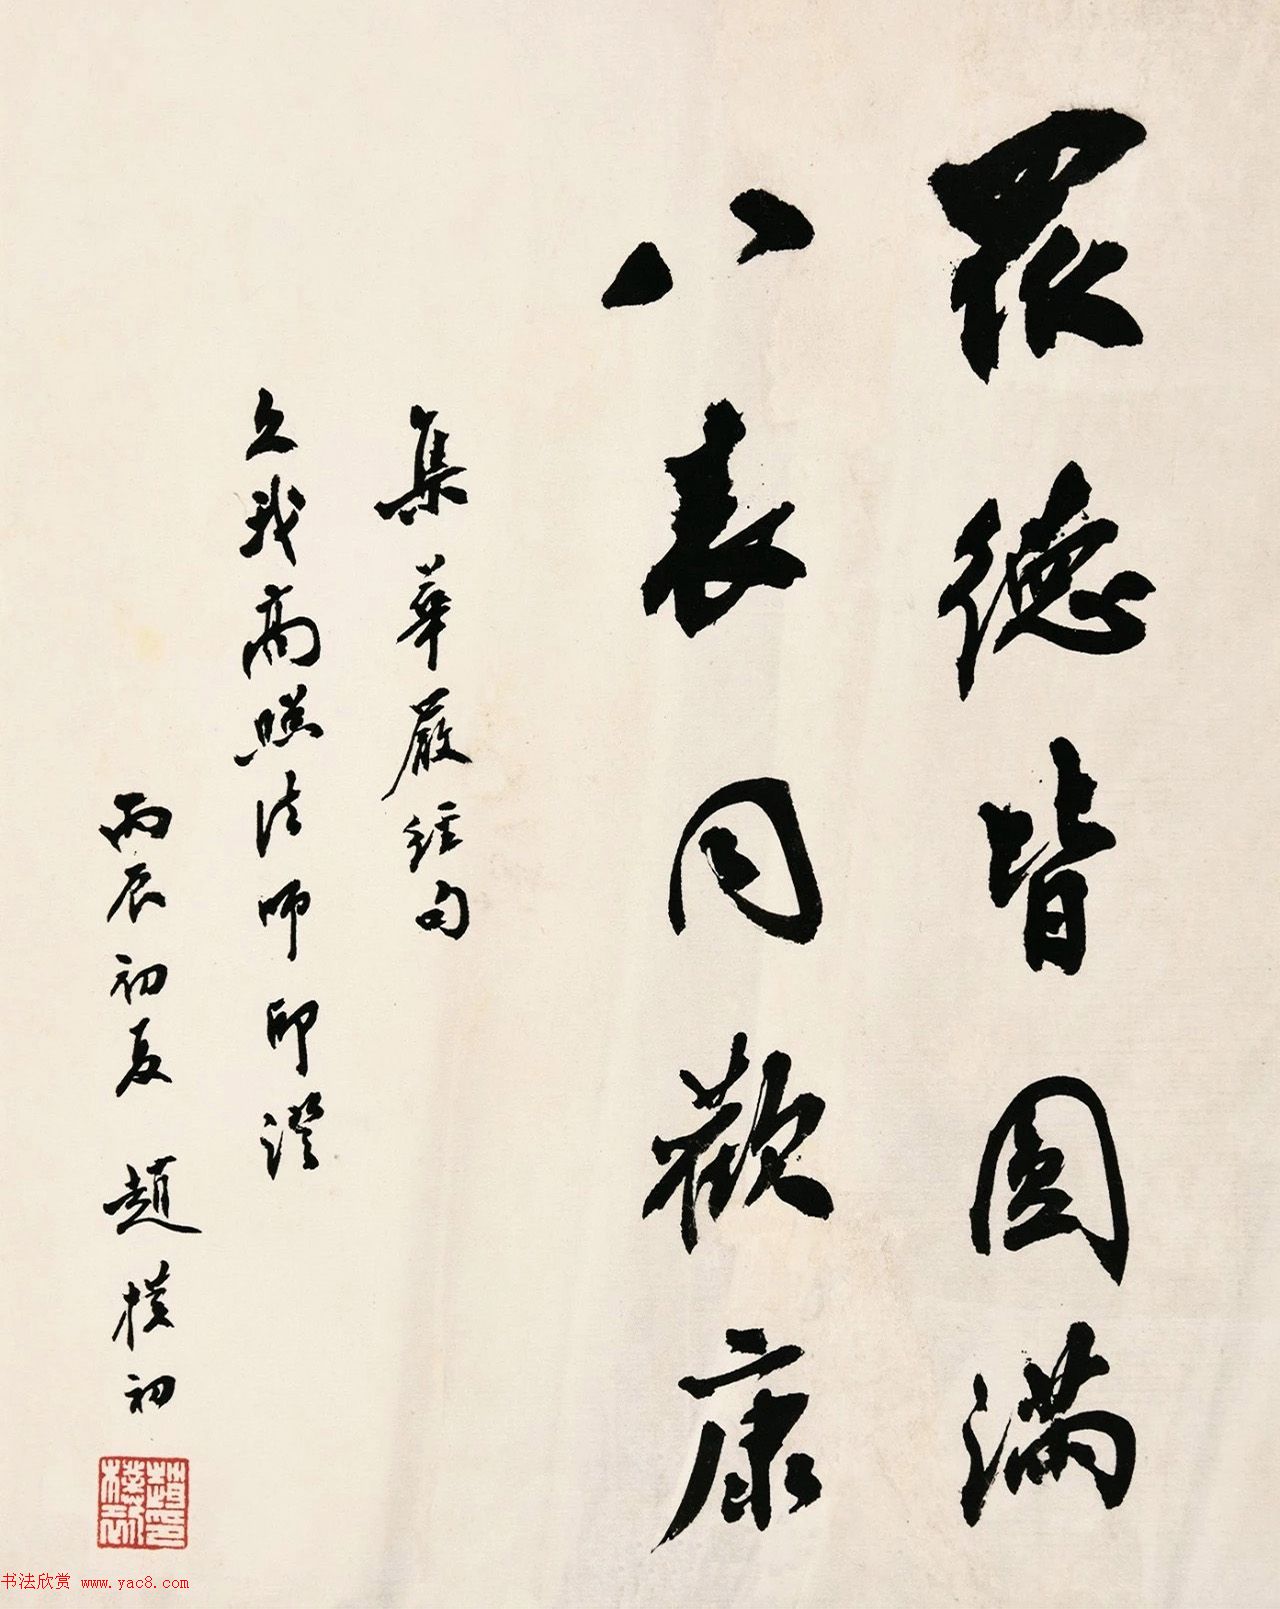 眾德皆圓滿
八表同歡康
集華嚴經句
久我高照法師印證
丙辰初夏 趙樸初
趙樸初印
书法欣赏 www.yac8.com